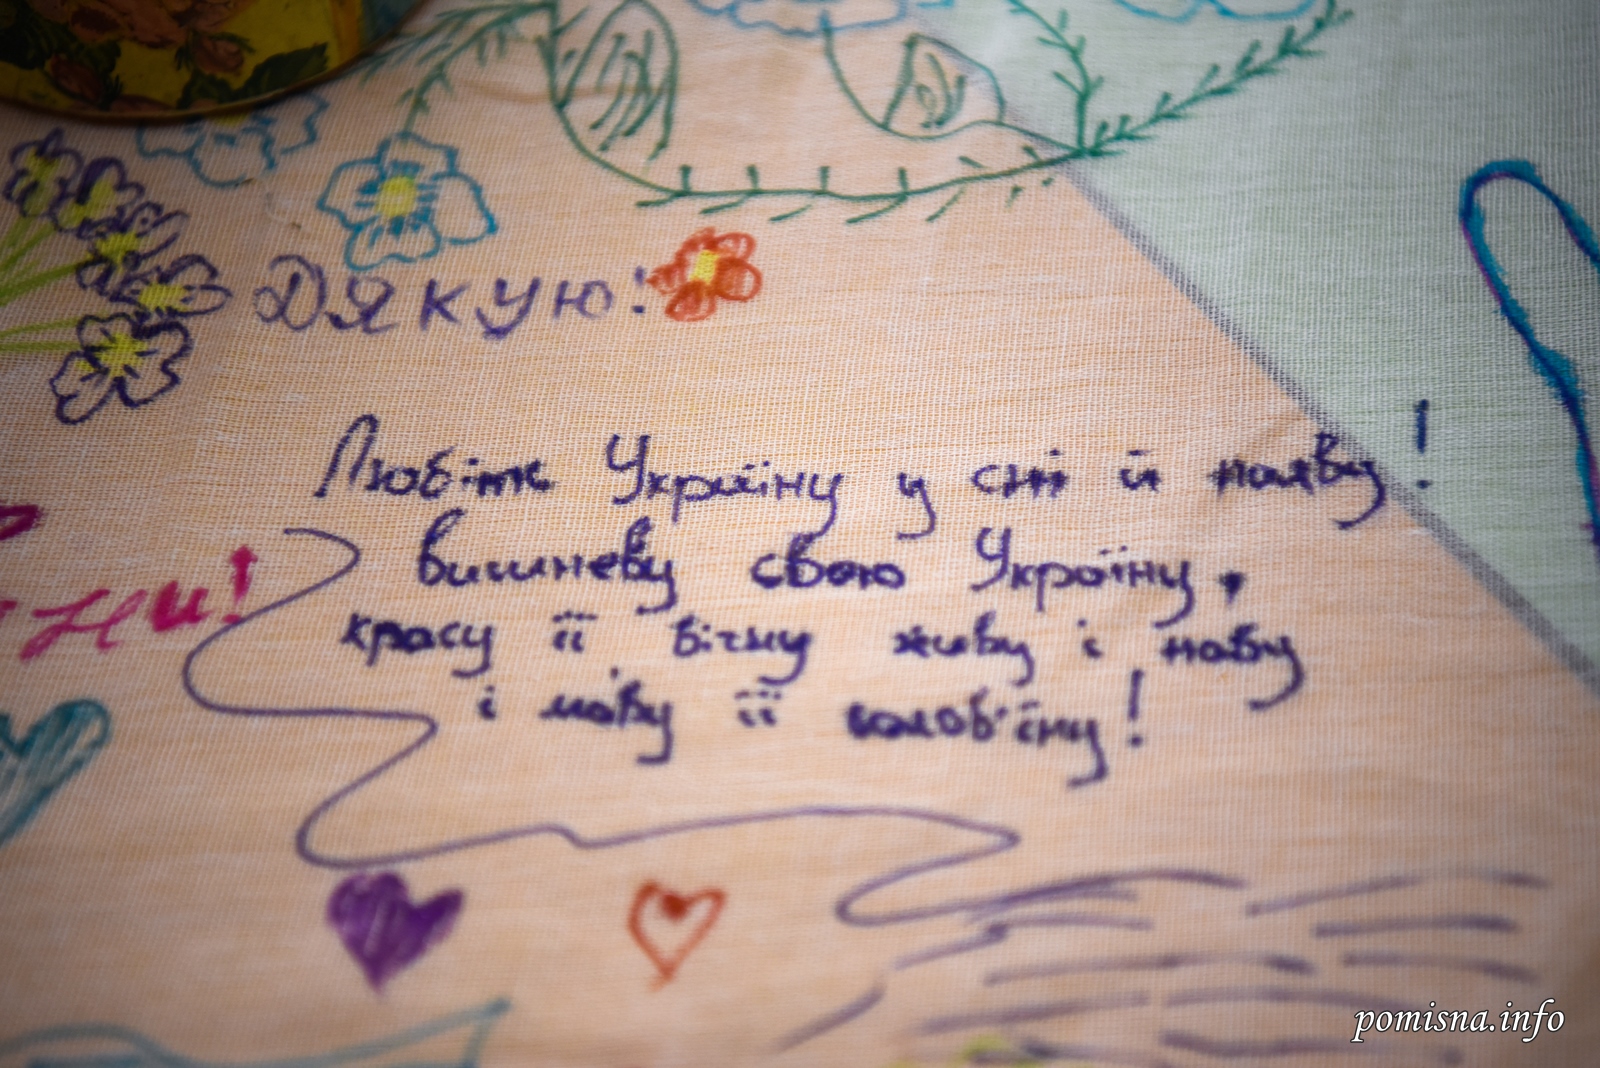 Дякую!
Любіть Україну у сні й наяву!
вишневу свою Україну,
красу її вічну живу і нову
і мову її солов'їну!
ни!
pomisna.info